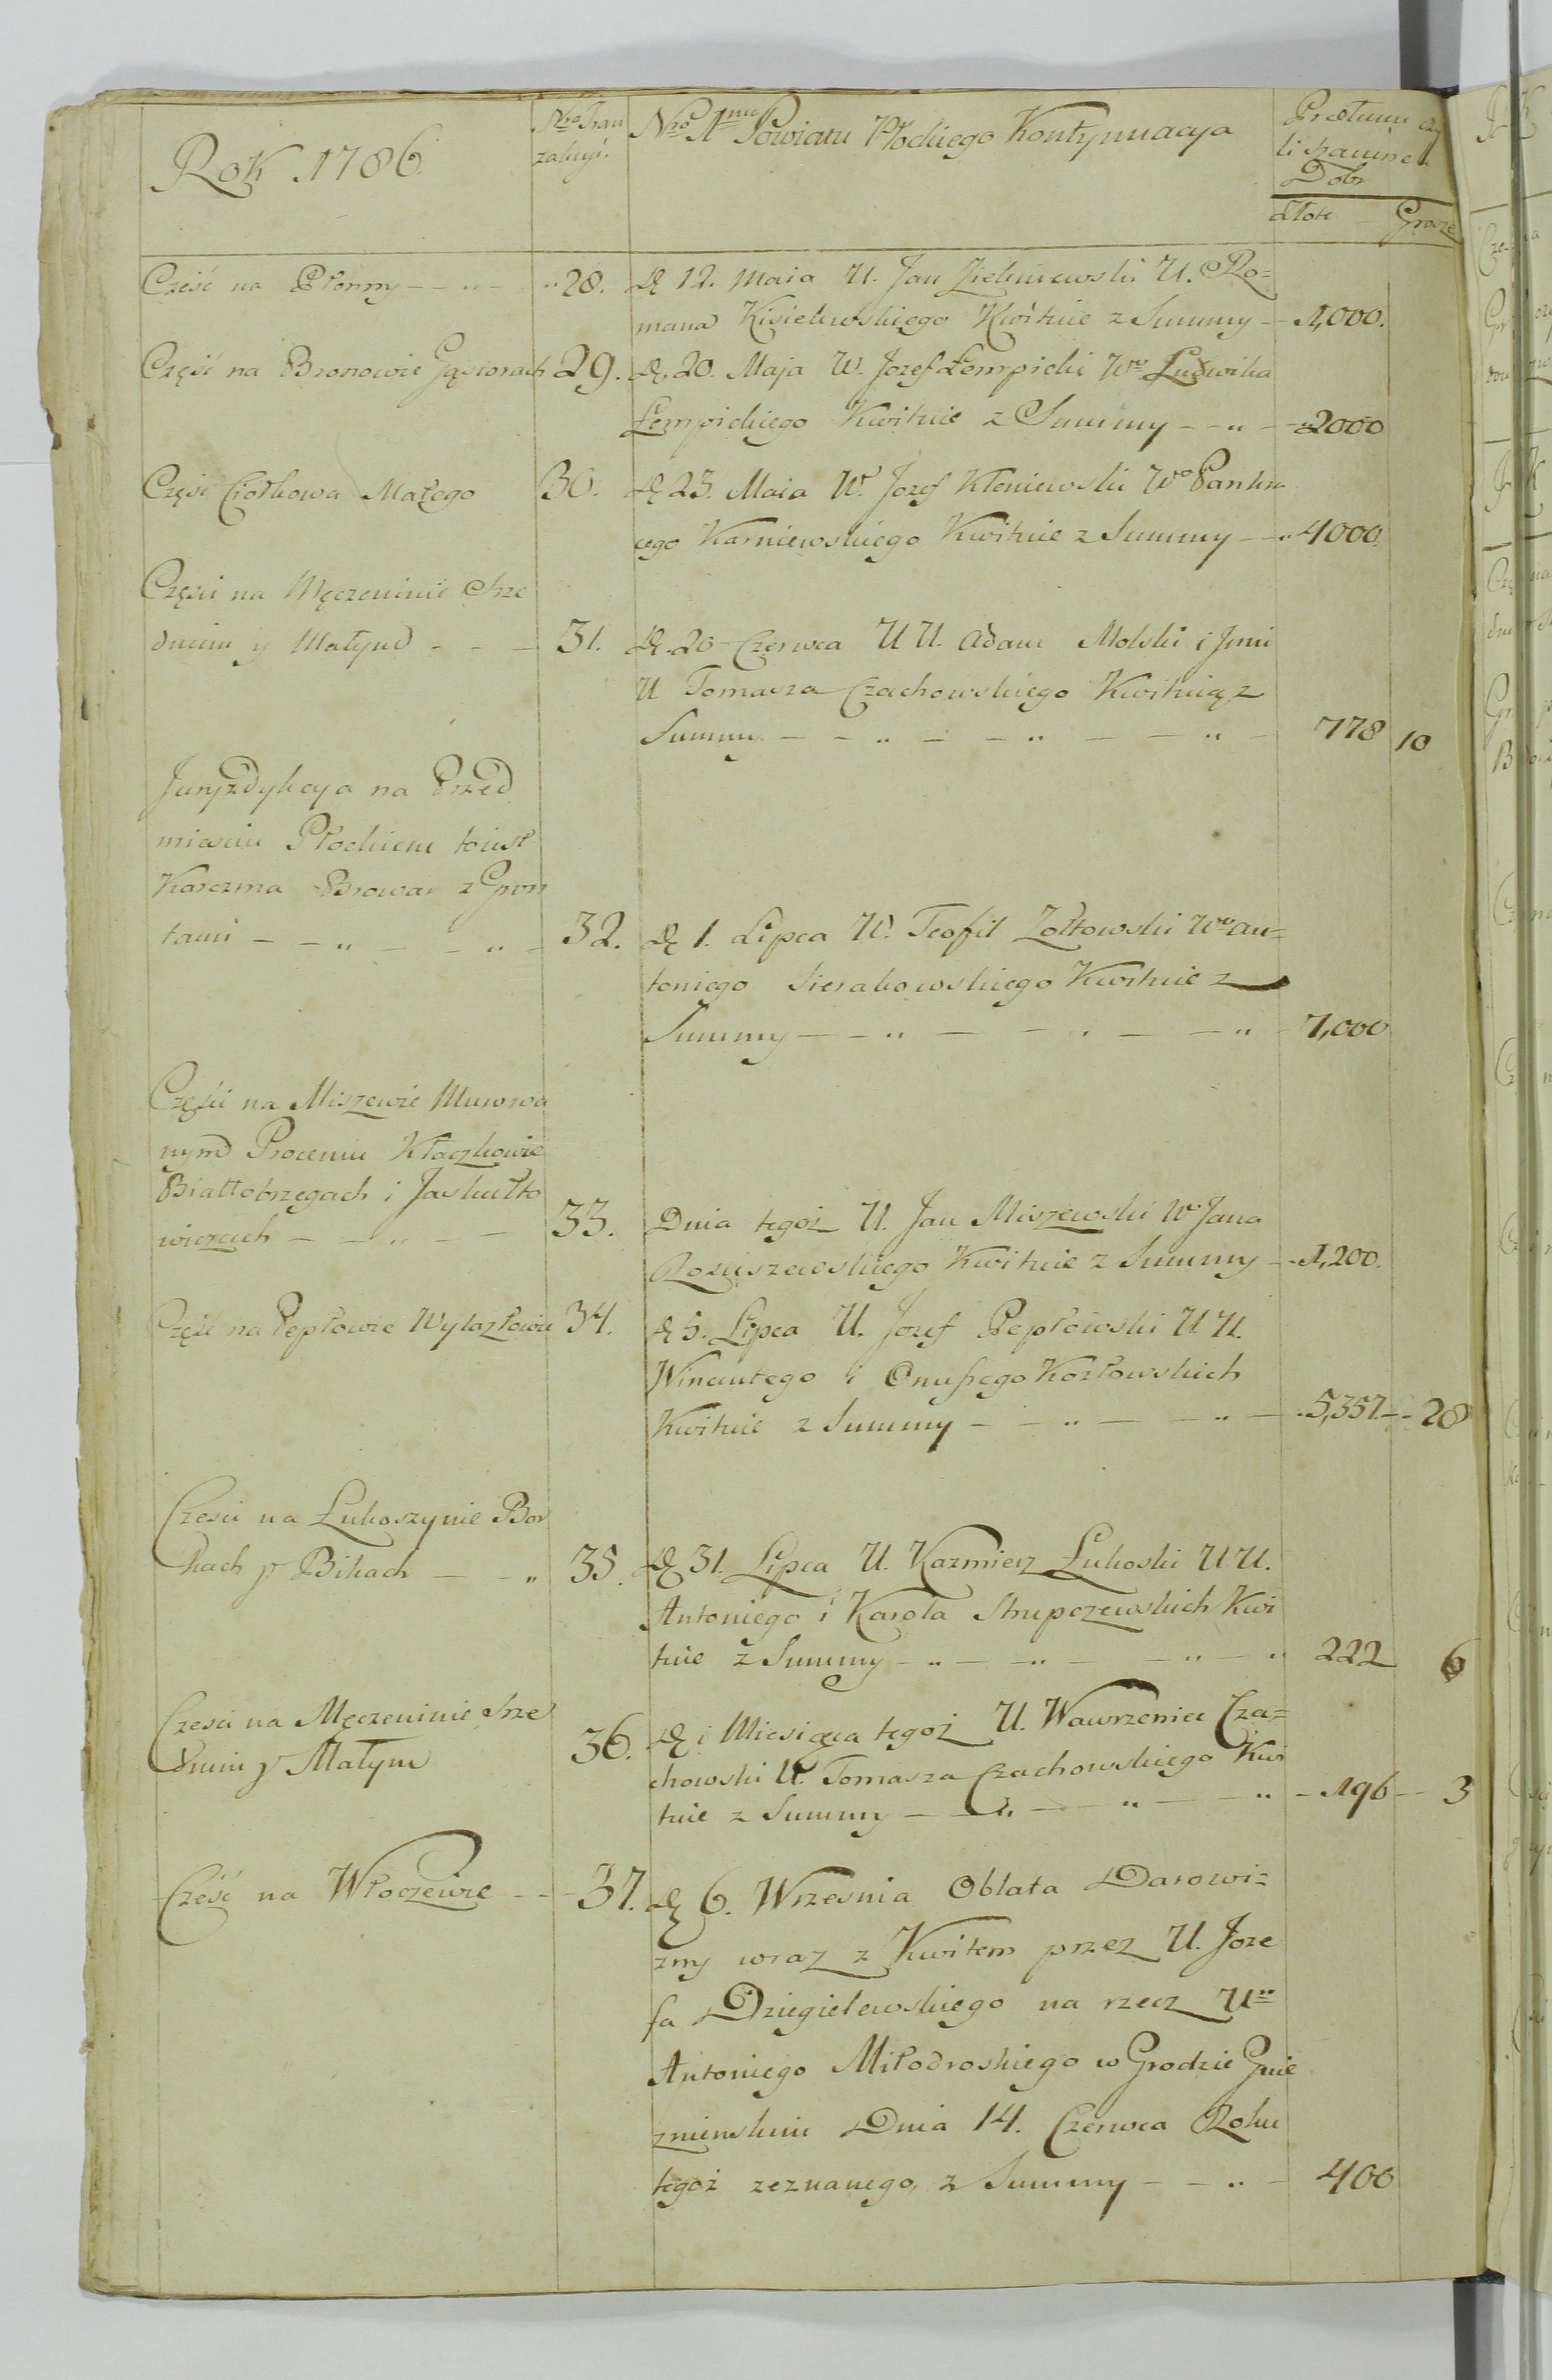 Rok 1786.
Nro Tran
zakcyi.
Nro 1mu Powiatu Płockiego Kontynuacya
Pretium czy
li szacunek
Dobr
Złote – Grosze
Cześć na Płonny – – „ – „ 28. D. 12. Maia U. Jan Zieleniewski U. Ro=
mana Kisielewskiego Kwituie z Summy – 1,000.
Część na Bronowie Gąsiorach 29. D. 20. Maja W. Jozef Łempicki Wo Ludwika
Łempickiego Kwituie z Summy – – „ – 2000
Część Ciołkowa Małego 30. D. 23. Maia W. Jozef Kleniewski Wo Pankra
cego Karniewskiego Kwituie z Summy – „ 4000.
Części na Męczeninie Srze
dnim y Małym – – – 31. D. 20 Czerwca U U. Adam Molski i Inni
U Tomasza Czachowskiego Kwituią z
Summy – – „ – – „ – – „ – 778 10
Juryzdykcya na Przed
miesciu Płockiem toiest
Karczma Browar z Grun
tami – – „ – – „ – 32. D. 1. Lipca W. Teofil Zołtowski Wo An=
toniego Sierakowskiego Kwituie z
Summy – – „ – – „ – – „ 7,000
Części na Miszewie Murowa
nym Proceniu Kłaczkowie
Białłobrzegach i Jaskułto
wiczach – – „ – – 33. Dnia tegoż U. Jan Miszewski Wo Jana
Rosciszewskiego Kwituie z Summy – 1,200.
Część na Pepłowie Wylazłowie 34. D. 5. Lipca U. Jozef Pepłowski U U.
Wincentego i Onufrego Kozłowskich
Kwituie z Summy – – „ – – „ – 5,357 – 28
Czesci na Lukoszynie Bor
kach y Bikach – – „ 35. D. 31. Lipca U. Kazmierz Lukoski U U.
Antoniego i Karola Strupczewskich Kwi
tuie z Summy – „ – – „ – – „ – „ 222 6
Czesci na Męczeninie Srze
dnim y Małym 36. D. i Miesiąca tegoż U. Wawrzeniec Cza=
chowski U. Tomasza Czachowskiego Kwi
tuie z Summy – – „ – – „ – – „ – 196 – 3
Cześć na Włoczewie – – 37. D. 6. Wrzesnia Oblata Darowi=
zny wraz z Kwitem przez U. Joze
fa Dziegielewskiego na rzecz Uo
Antoniego Miłodroskiego w Grodzie Gnie
znienskim Dnia 14. Czerwca Roku
tegoż zeznanego, z Summy – – „ – 400